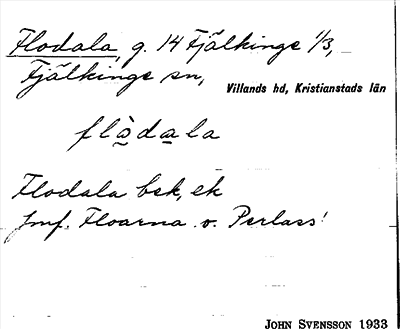 Flodala, g. 14 Fjälkinge 1/3,
Fjälkinge sn,
Villands hd, Kristianstads län
flòdala
Flodala bsk, ek
Jmf. Floarna o. Perlass!
JOHN SVENSSON 1933